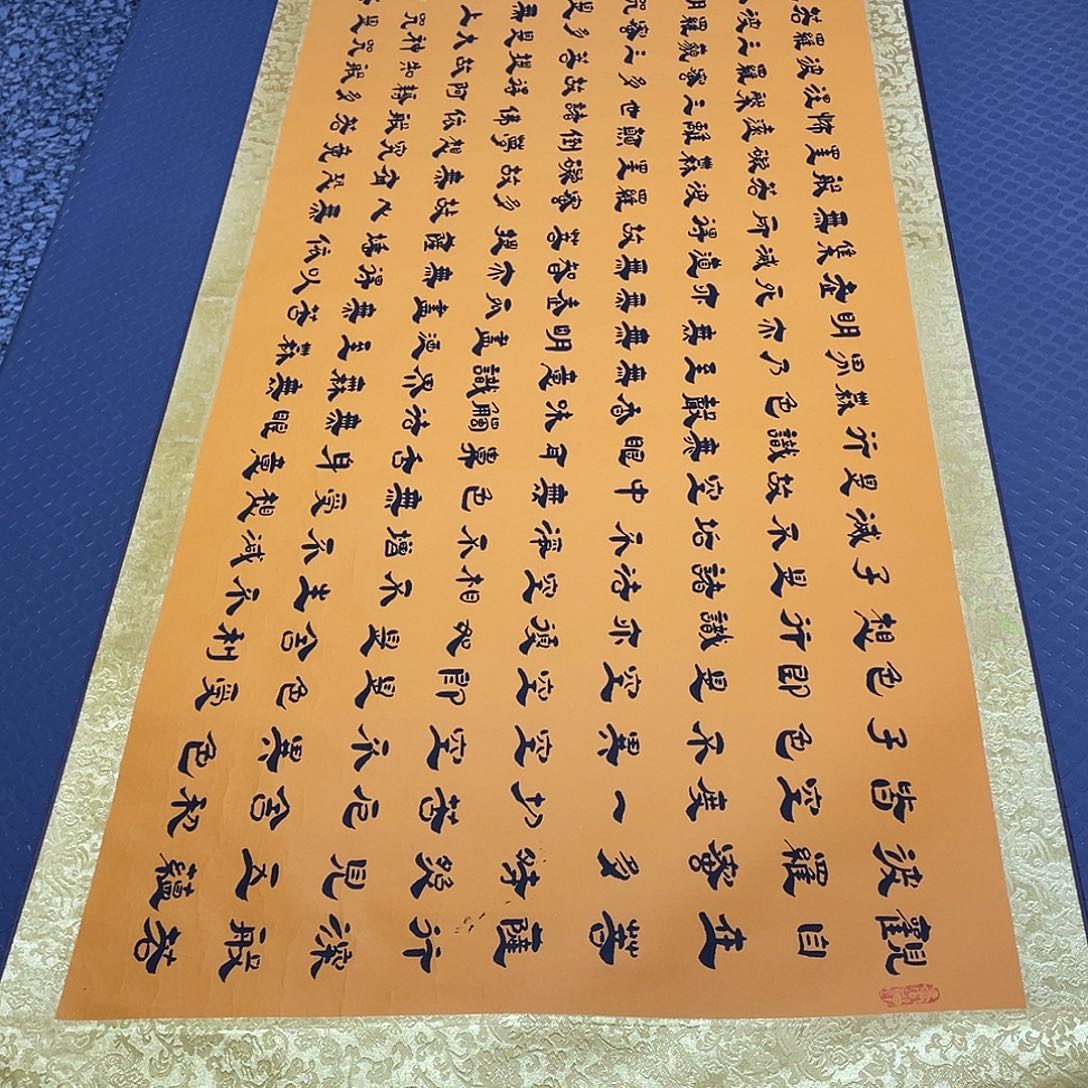 觀自在菩薩行深般若
波羅蜜多時照見五蘊
皆空度一切苦厄舍利
子色不異空空不異色
色即是空空即是色受
想行識亦復如是舍利
子是諸法空相不生不
滅不垢不淨不增不減
是故空中無色無受想
行識無眼耳鼻舌身意
無色聲香味觸法無眼
界乃至無意識界無無
明亦無無明盡乃至無
老死亦無老死盡無苦
集滅道無智亦無得以
無所得故菩提薩埵依
般若波羅蜜多故心無
罣礙無罣礙故無有恐
怖遠離顛倒夢想究竟
涅槃三世諸佛依般若
波羅蜜多故得阿耨多
羅三藐三菩提故知般
若波羅蜜多是大神咒
明咒是無上咒是